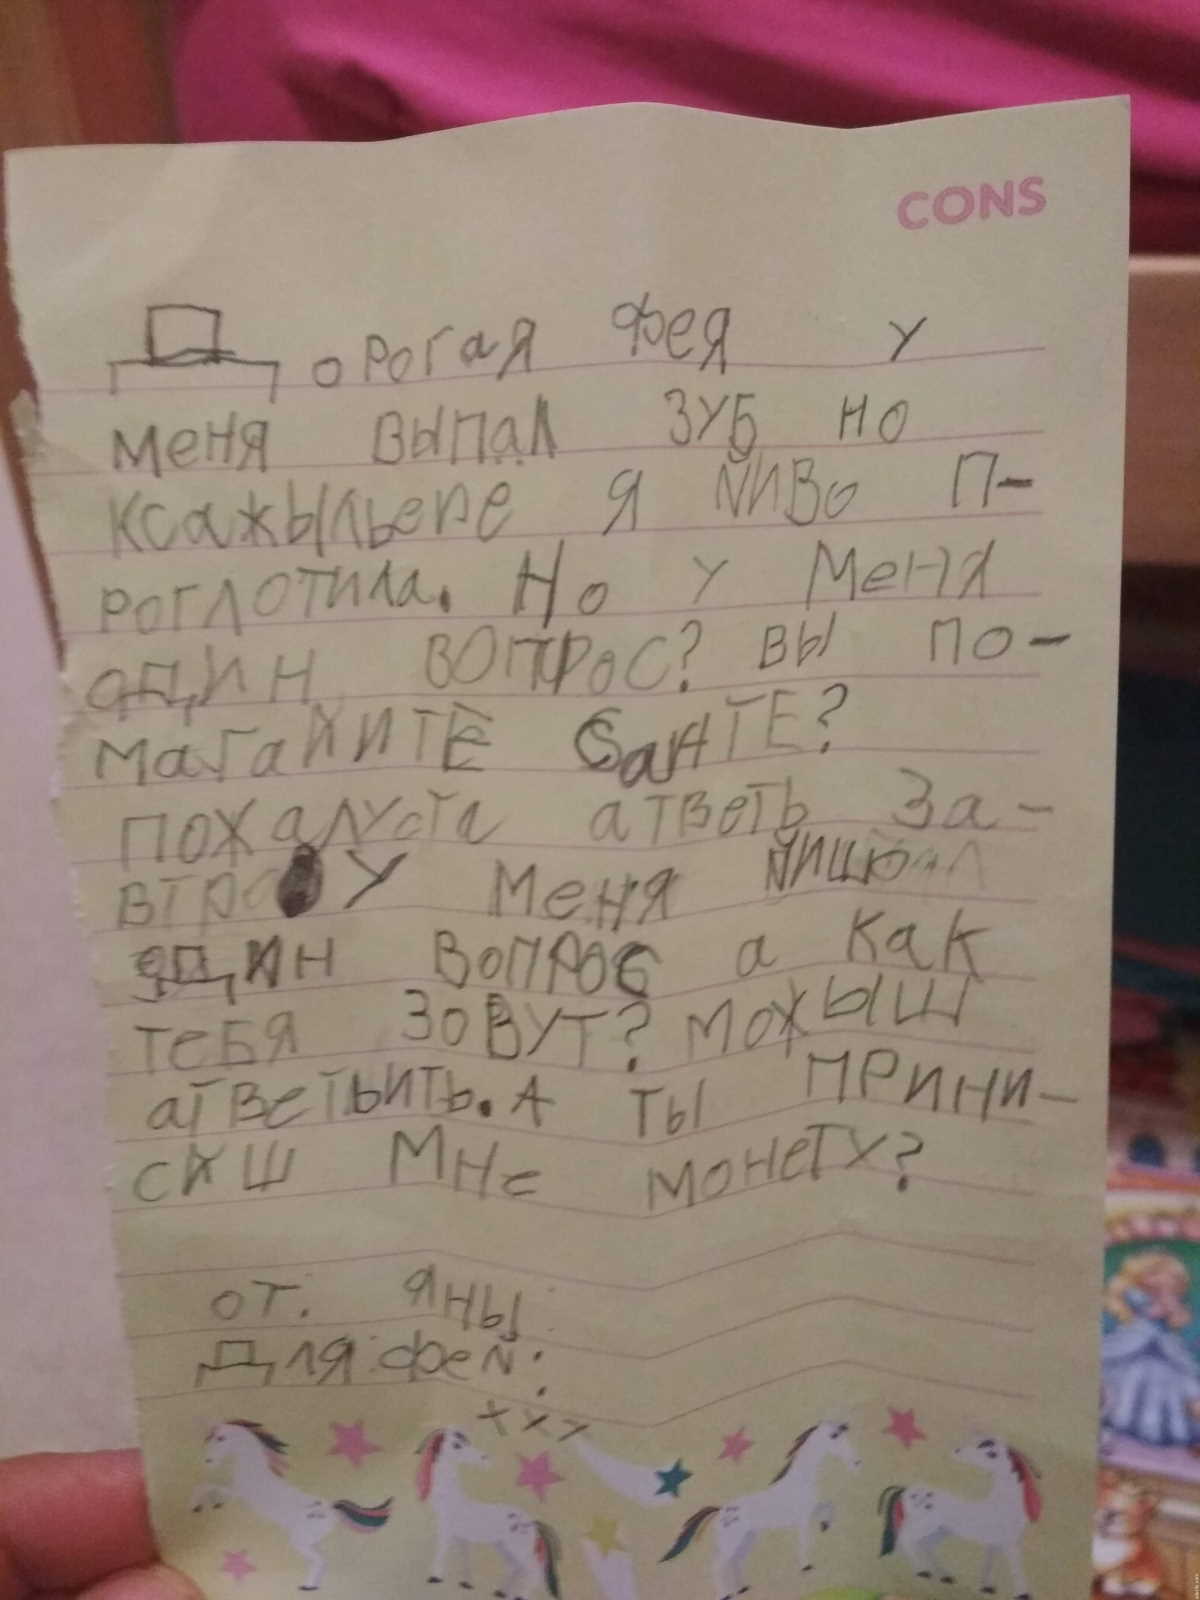 CONS
Дорогая Фея у
меня выпал зуб но
ксажыльене я йиво п-
роглотила. Но у меня
один вопрос? вы по-
магайите Санте?
пожалуста атветь за-
втра У меня
один вопрос а как
тебя зовут? можыш
атветьить. А ты прини-
сиш мне монету?
от. яны
Для фей:
xxx